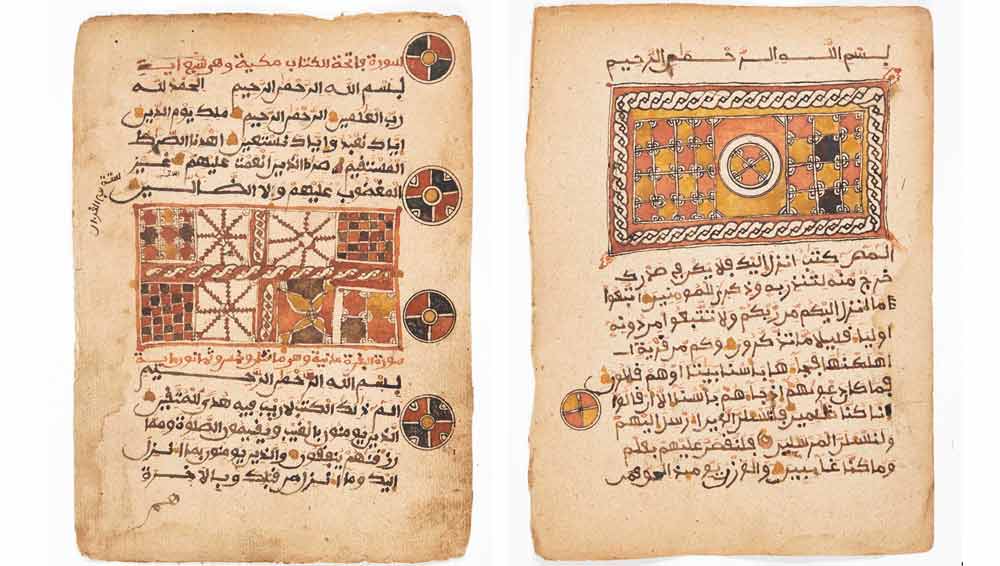 سورة فاتحة الكتاب مكية وهي سبع اية
بسم الله الرحمن الرحيم الحمد لله
رب العلمين الرحمن الرحيم ملك يوم الدين
اياك نعبد واياك نستعين اهدنا الصرط
المستقيم صرط الذين انعمت عليهم غير
المغضوب عليهم ولا الضالين
سورة البقرة مدنية وهي مائتان وخمس وثمانون اية
بسم الله الرحمن الرحيم
الم ذلك الكتب لا ريب فيه هدى للمتقين
الذين يومنون بالغيب ويقيمون الصلوة ومما
رزقنهم ينفقون والذين يومنون بما انزل
اليك وما انزل من قبلك وبالاخرة
بسم الله الرحمن الرحيم
المص كتب انزل اليك فلا يكن في صدرك
حرج منه لتنذر به وذكرى للمومنين اتبعوا
ما انزل اليكم من ربكم ولا تتبعوا من دونه
اولياء قليلا ما تذكرون وكم من قرية
اهلكنها فجاءها باسنا بيتا او هم قايلون
فما كان دعويهم اذ جاءهم باسنا الا ان قالوا
انا كنا ظلمين فلنسئلن الذين ارسل اليهم
ولنسئلن المرسلين فلنقصن عليهم بعلم
وما كنا غايبين والوزن يومئذ الحق فمن